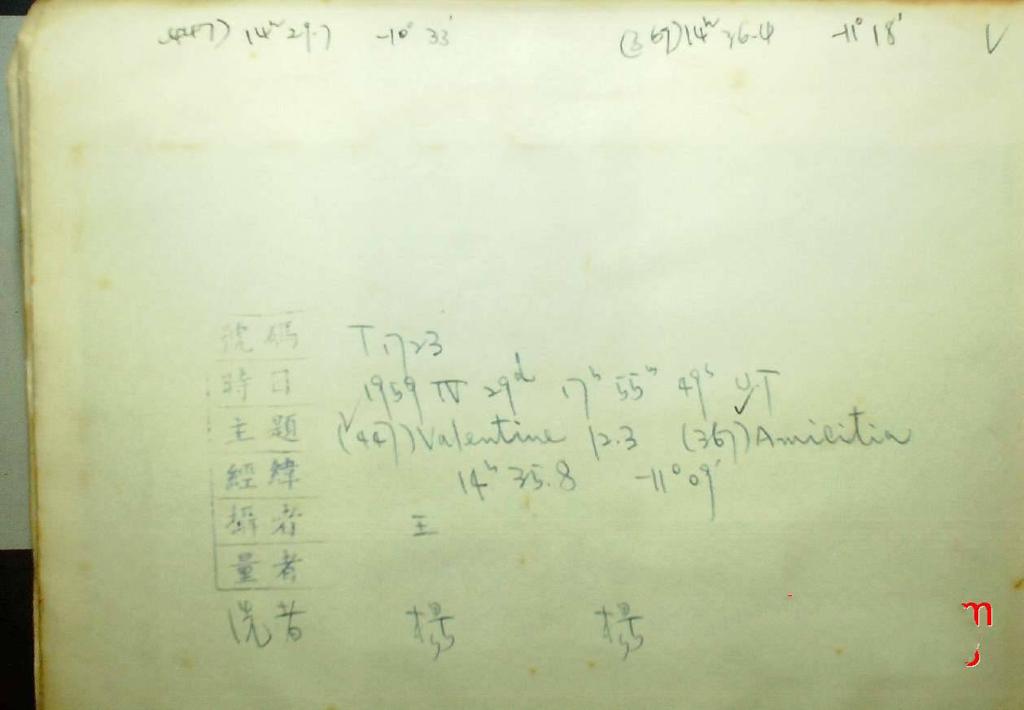 (447) 14ʰ 29.7 -10° 33′ (367) 14ʰ 36.4 -11° 18′ √
號碼 T1723
時日 1959 IV 29ᵈ 17ʰ 55ᵐ 49ˢ UT
主題 √(447) Valentine 12.3 √(367) Amicitia
經緯 14ʰ 35.8 -11° 09′
攝者 王
量者
洗者 楊 楊